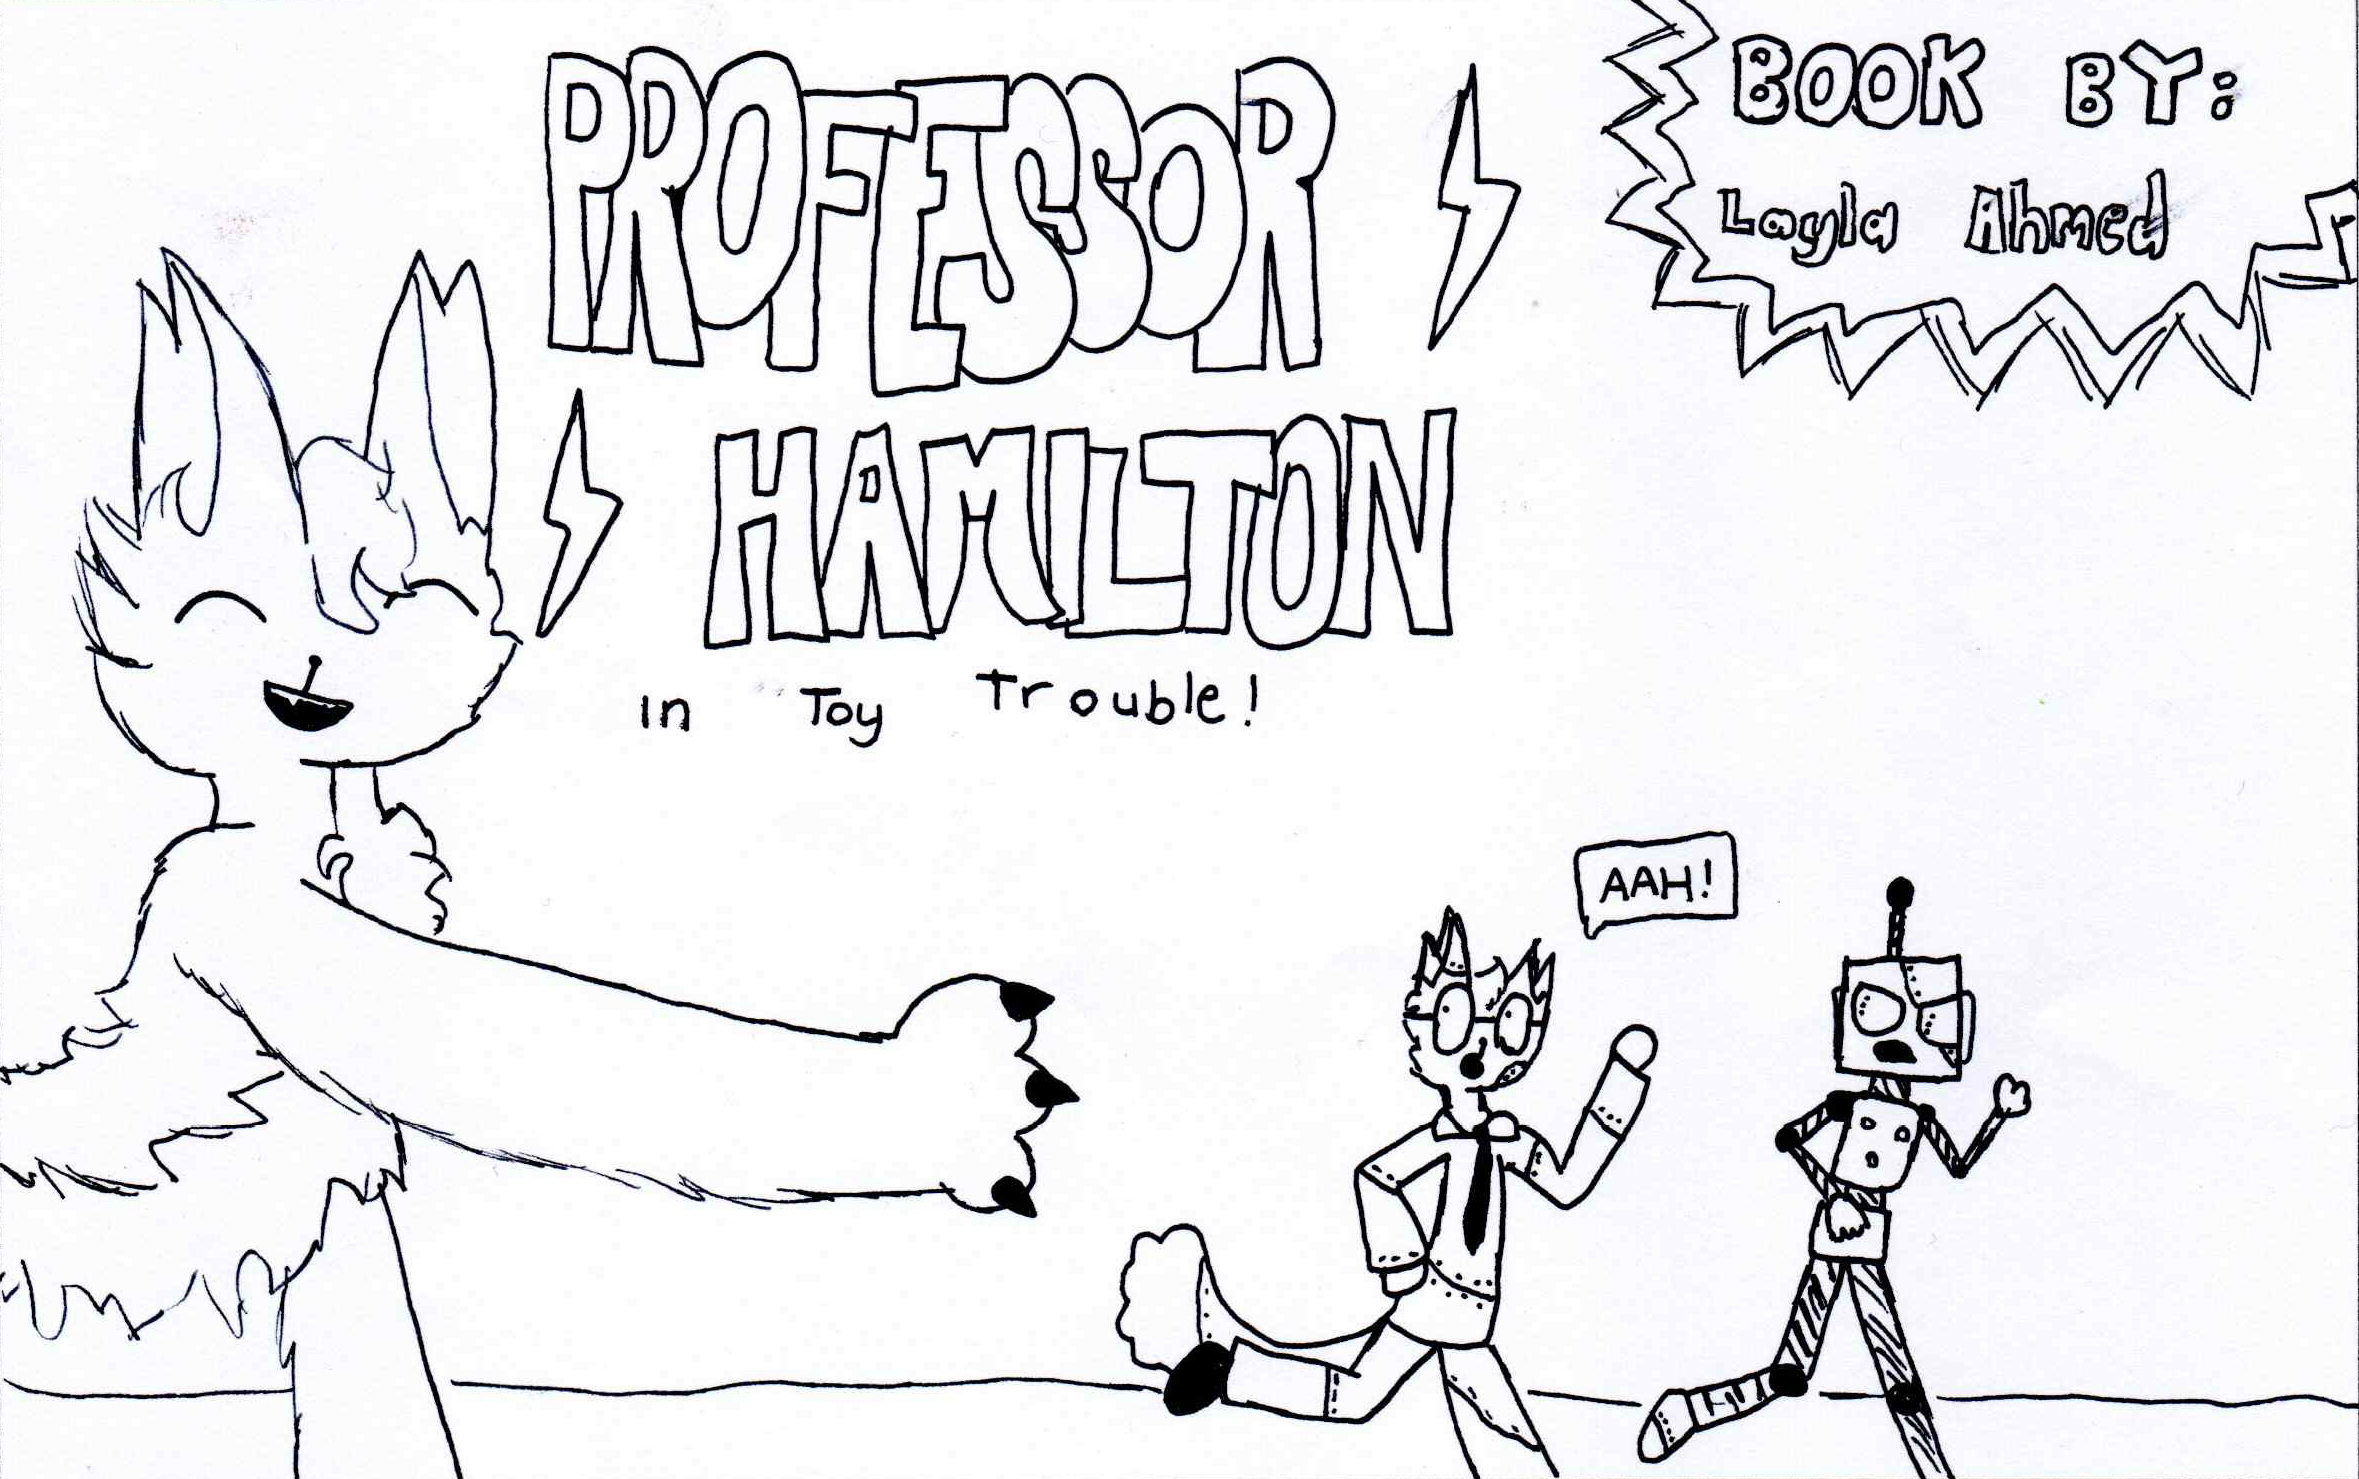 PROFESSOR
HAMILTON
in Toy Trouble!
BOOK BY:
Layla Ahmed
AAH!